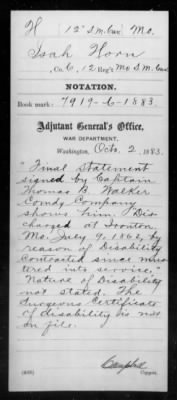 H 12" S.M. Cav. Mo.
Isah Horn
Co. G, 12 Reg't Mo S.M. Cav.
NOTATION.
Book mark: 7919-G-1883.
Adjutant General's Office,
WAR DEPARTMENT,
Washington, Oct. 2, 1883.
"Final statement
signed by Captain
Thomas B. Walker
Comdg Company
shows him Dis-
charged at Ironton
Mo. July 9, 1862, by
reason of Disability
Contracted since mus-
tered into service,"
Nature of Disability
not stated. The
Surgeons Certificate
of disability is not
on file.
Campbell
Copyist.